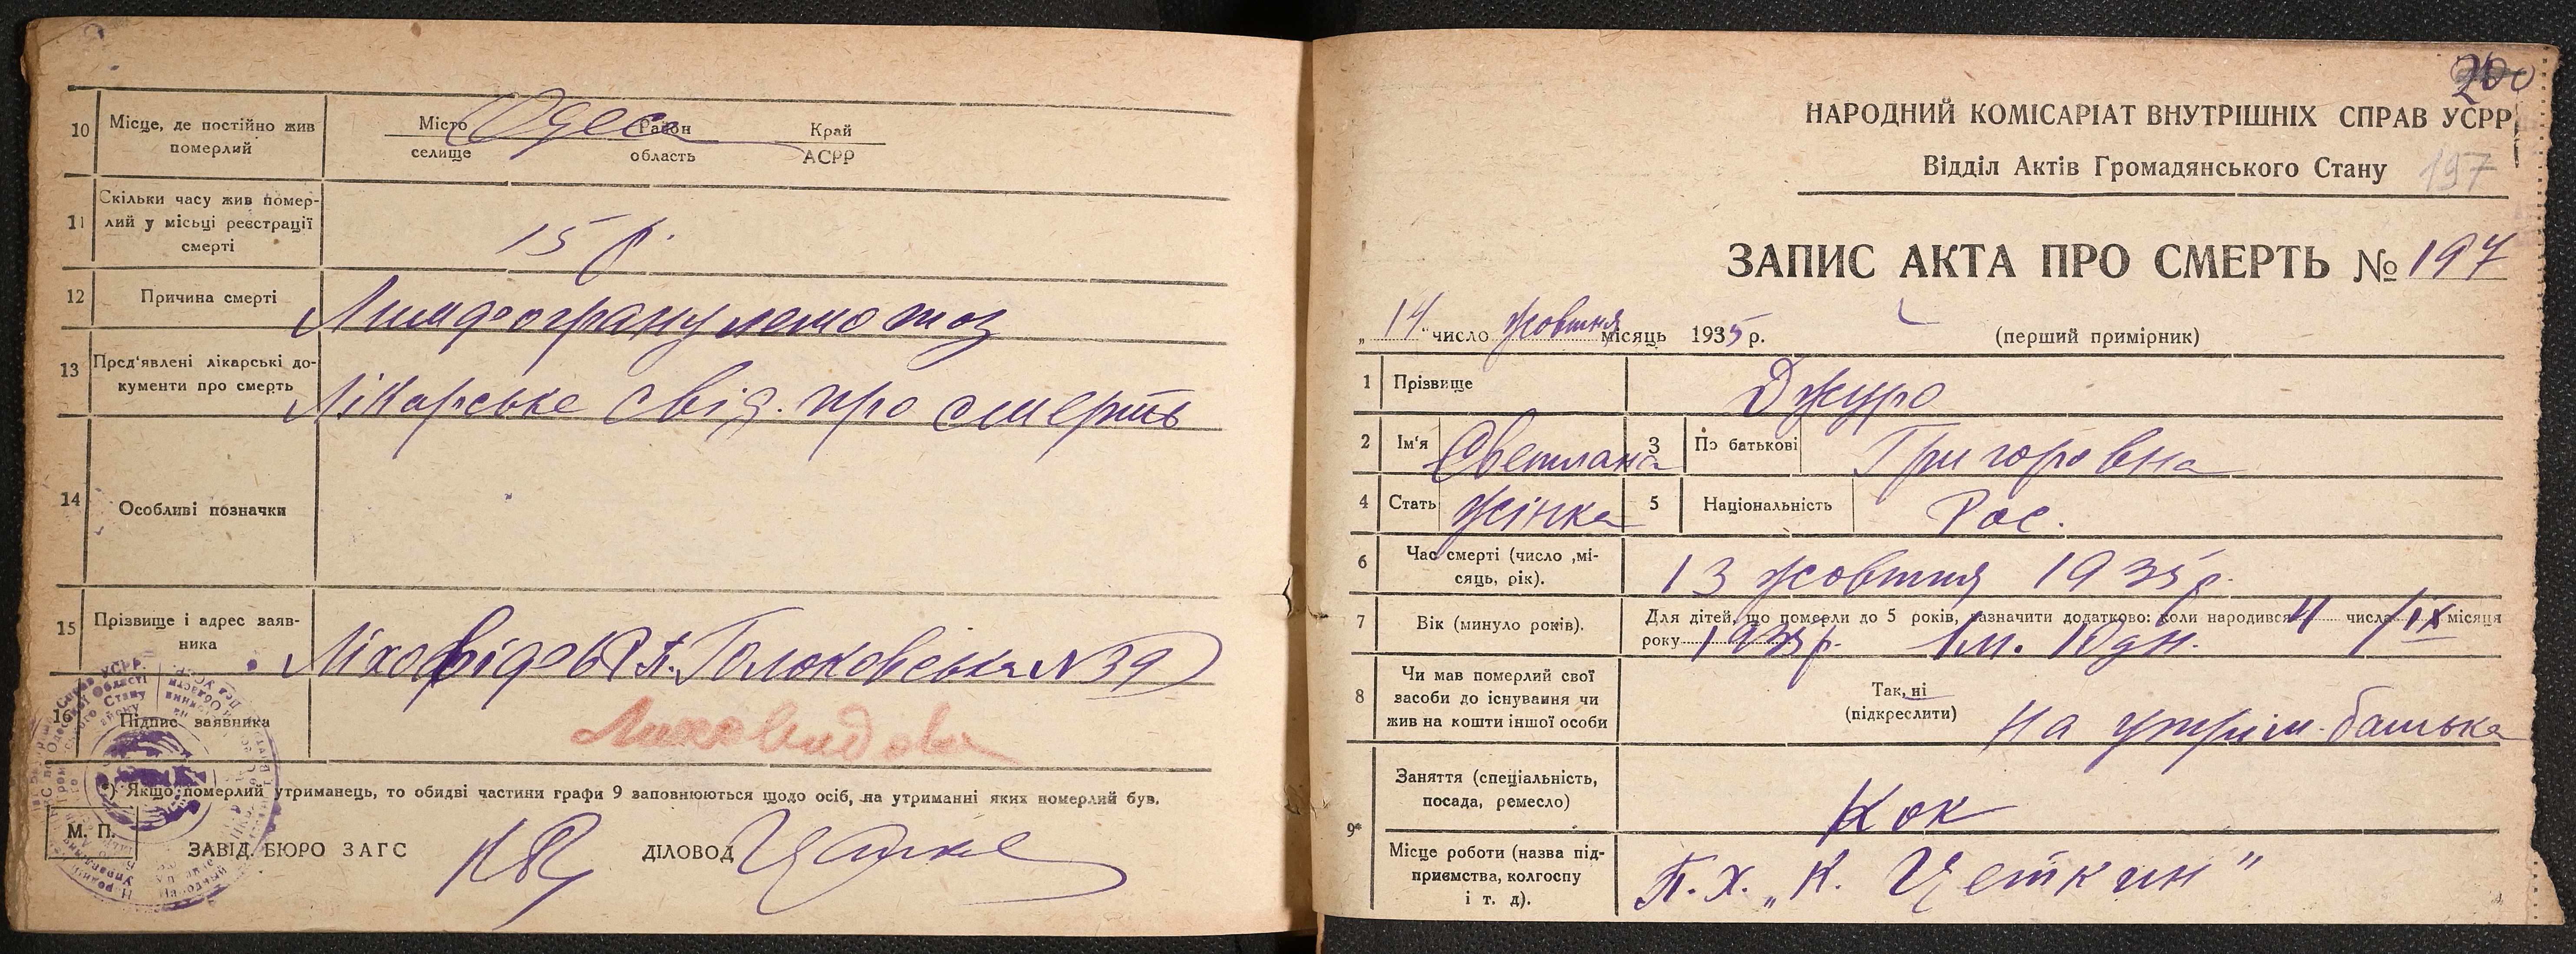 10 Місце, де постійно жив померлий
Місто селище Район область Край АСРР
Одеса
11 Скільки часу жив помер-
лий у місьці реєстрації
смерті
15 р.
12 Причина смерті
Лимфогранулематоз
13 Пред'явлені лікарські до-
кументи про смерть
Лікарське свід. про смерть
14 Особливі позначки
15 Прізвище і адрес заяв-
ника
Ліховідов П. Голоковська N 39
16 Підпис заявника
Лиховидова
*) Якщо померлий утриманець, то обидві частини графи 9 заповнюються щодо осіб, на утриманні яких померлий був.
М. П.
ЗАВІД. БЮРО ЗАГС
ДІЛОВОД
200
НАРОДНИЙ КОМІСАРІАТ ВНУТРІШНІХ СПРАВ УСРР
Відділ Актів Громадянського Стану
197
ЗАПИС АКТА ПРО СМЕРТЬ № 197
„14" число жовтня місяць 1935 р.
(перший примірник)
1 Прізвище Джуро
2 Ім'я Светлана 3 По батькові Григоровна
4 Стать жінка 5 Національність Рос.
6 Час смерті (число ,мі-
сяць, рік).
13 жовтня 1935 р.
7 Вік (минуло років).
Для дітей, що померли до 5 років, зазначити додатково: коли народився 4 число IX місяця
року 1935 р. 1 м. 10 дн.
8 Чи мав померлий свої
засоби до існування чи
жив на кошти іншої особи
Так, ні
(підкреслити)
На утрим. батька
9* Заняття (спеціальність,
посада, ремесло)
Кок
Місце роботи (назва під-
приємства, колгоспу
і т. д).
П. Х. „К. Цеткин"